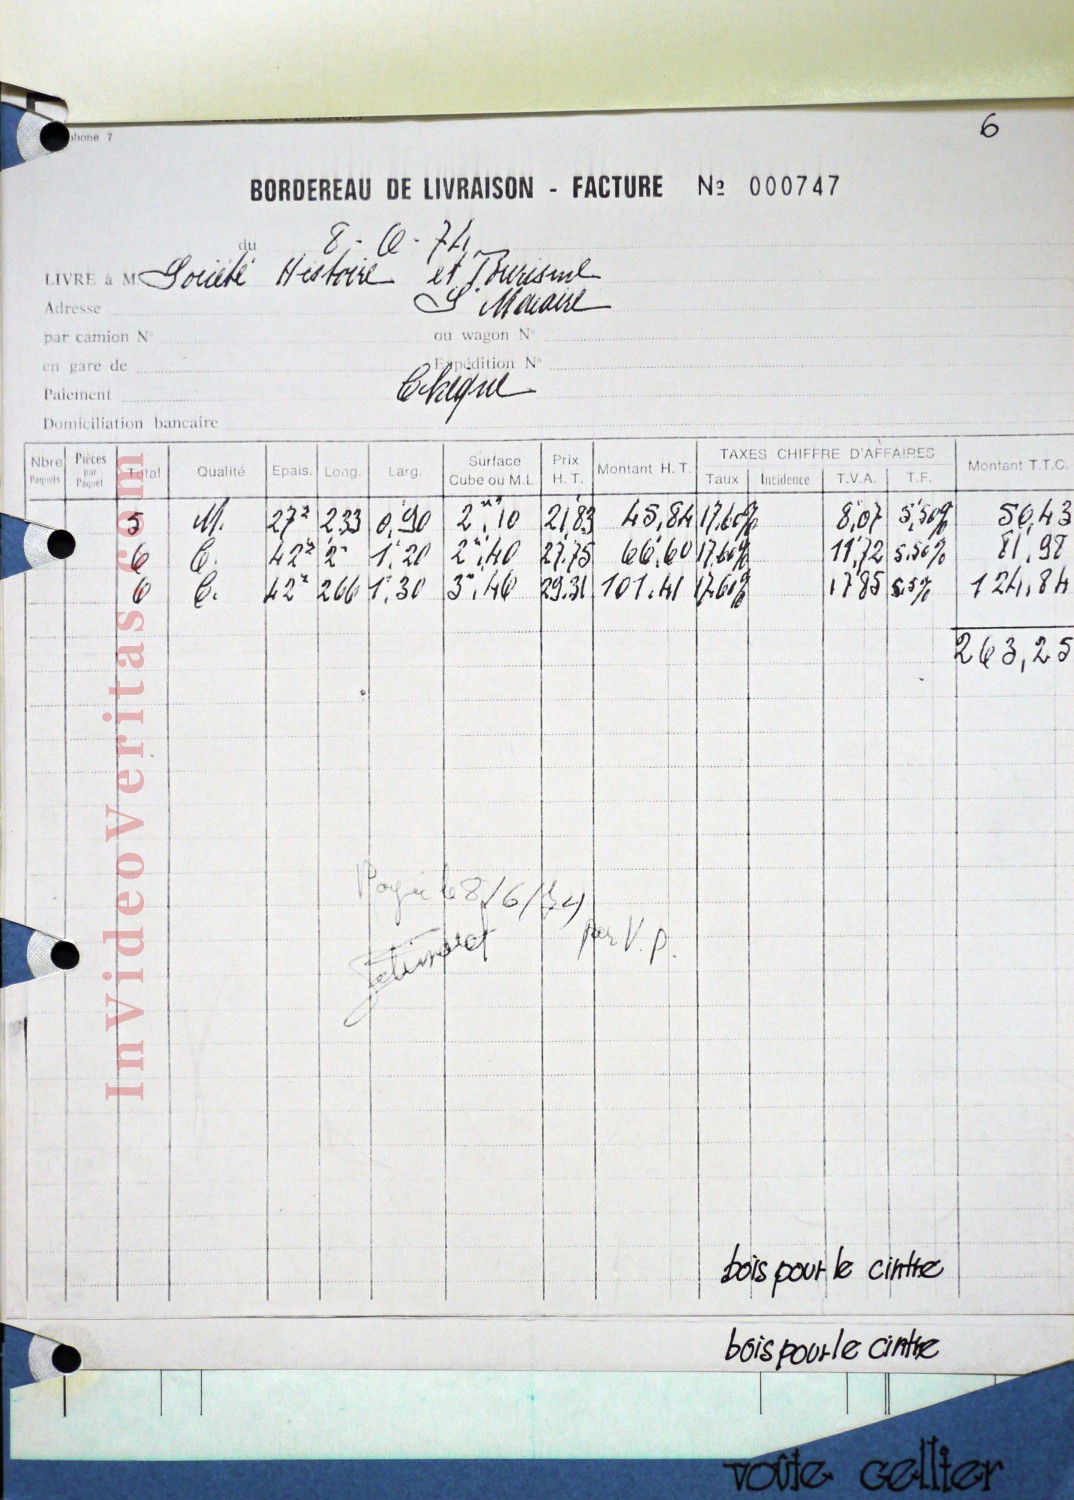 phone 7
6
BORDEREAU DE LIVRAISON - FACTURE Nº 000747
du 8-6-74
LIVRE à M Société Histoire et Tourisme
Adresse
par camion Nº ou wagon Nº
en gare de Expédition Nº
Paiement Chèque
Domiciliation bancaire
Nbre Paquets Pièces par Paquet Total Qualité Epais. Long. Larg. Surface Cube ou M.L. Prix H. T. Montant H. T. TAXES CHIFFRE D'AFFAIRES Taux Incidence T.V.A. T.F. Montant T.T.C.
5 M. 27 233 0,90 2,10 21,83 45,84 17,60% 8,07 5,50% 56,43
6 C. 42 2 1,20 2,40 27,75 66,60 17,60% 11,72 5.50% 81,98
6 C. 42 266 1,30 3,46 29.31 101.41 17,60% 17,85 5.5% 124,84
263,25
le 8/6/74
par V. P.
bois pour le cintre
bois pour le cintre
voûte cellier
InVideoVeritas.com